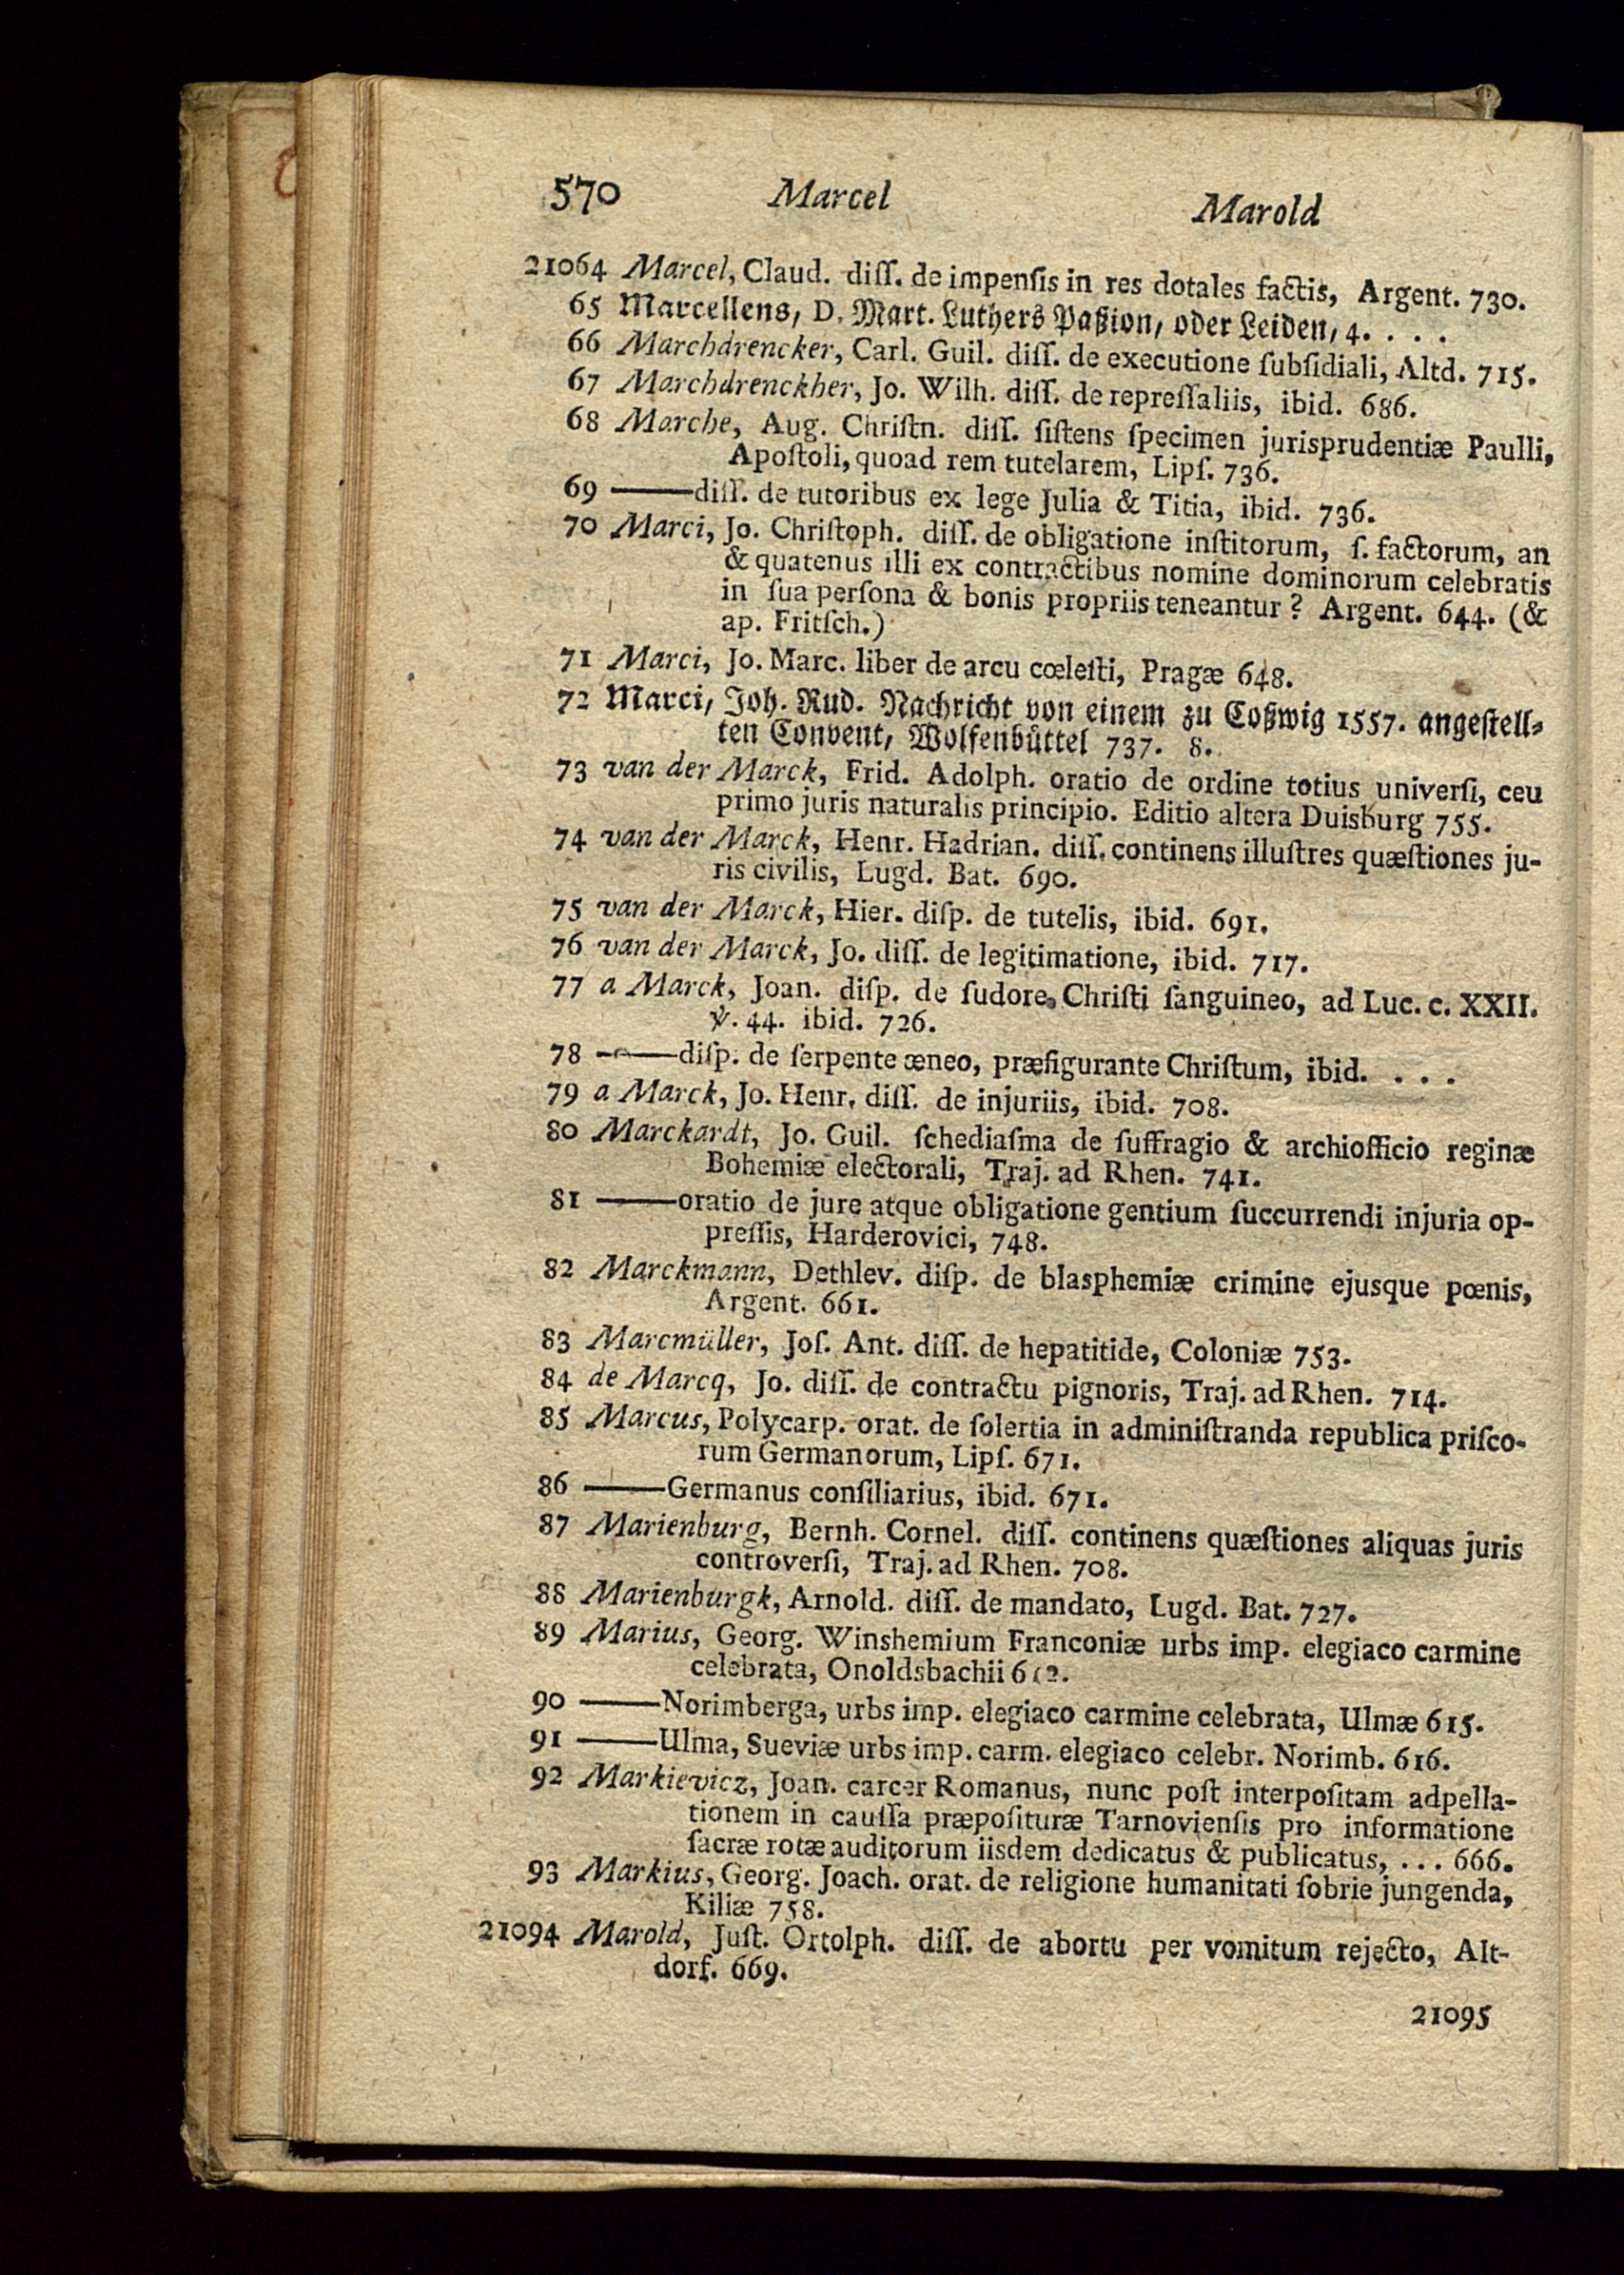 570 Marcel Marold
21064 Marcel, Claud. diſſ. de impenſis in res dotales factis, Argent. 730.
65 Marcellens, D. Mart. Luthers Paßion, oder Leiden, 4. . . .
66 Marchdrencker, Carl. Guil. diſſ. de executione ſubſidiali, Altd. 715.
67 Marchdrenckher, Jo. Wilh. diſſ. de repreſſaliis, ibid. 686.
68 Marche, Aug. Chriſtn. diſſ. ſiſtens ſpecimen jurisprudentiæ Paulli,
Apoſtoli, quoad rem tutelarem, Lipſ. 736.
69 ——diſſ. de tutoribus ex lege Julia & Titia, ibid. 736.
70 Marci, Jo. Chriſtoph. diſſ. de obligatione inſtitorum, ſ. factorum, an
& quatenus illi ex contractibus nomine dominorum celebratis
in ſua perſona & bonis propriis teneantur? Argent. 644. (&
ap. Fritſch.)
71 Marci, Jo. Marc. liber de arcu cœleſti, Pragæ 648.
72 Marci, Joh. Rud. Nachricht von einem zu Coßwig 1557. angeſtell-
ten Convent, Wolfenbüttel 737. 8.
73 van der Marck, Frid. Adolph. oratio de ordine totius univerſi, ceu
primo juris naturalis principio. Editio altera Duisburg 755.
74 van der Marck, Henr. Hadrian. diſſ. continens illuſtres quæſtiones ju-
ris civilis, Lugd. Bat. 690.
75 van der Marck, Hier. diſp. de tutelis, ibid. 691.
76 van der Marck, Jo. diſſ. de legitimatione, ibid. 717.
77 a Marck, Joan. diſp. de ſudore Chriſti ſanguineo, ad Luc. c. XXII.
℣. 44. ibid. 726.
78 ——diſp. de ſerpente æneo, præfigurante Chriſtum, ibid. . . .
79 a Marck, Jo. Henr. diſſ. de injuriis, ibid. 708.
80 Marckardt, Jo. Guil. ſchediaſma de ſuffragio & archiofficio reginæ
Bohemiæ electorali, Traj. ad Rhen. 741.
81 ——oratio de jure atque obligatione gentium ſuccurrendi injuria op-
preſſis, Harderovici, 748.
82 Marckmann, Dethlev. diſp. de blasphemiæ crimine ejusque pœnis,
Argent. 661.
83 Marcmüller, Joſ. Ant. diſſ. de hepatitide, Coloniæ 753.
84 de Marcq, Jo. diſſ. de contractu pignoris, Traj. ad Rhen. 714.
85 Marcus, Polycarp. orat. de ſolertia in adminiſtranda republica priſco-
rum Germanorum, Lipſ. 671.
86 ——Germanus conſiliarius, ibid. 671.
87 Marienburg, Bernh. Cornel. diſſ. continens quæſtiones aliquas juris
controverſi, Traj. ad Rhen. 708.
88 Marienburgk, Arnold. diſſ. de mandato, Lugd. Bat. 727.
89 Marius, Georg. Winshemium Franconiæ urbs imp. elegiaco carmine
celebrata, Onoldsbachii
90 ——Norimberga, urbs imp. elegiaco carmine celebrata, Ulmæ 615.
91 ——Ulma, Sueviæ urbs imp. carm. elegiaco celebr. Norimb. 616.
92 Markievicz, Joan. carcer Romanus, nunc poſt interpoſitam adpella-
tionem in cauſſa præpoſituræ Tarnovienſis pro informatione
ſacræ rotæ auditorum iisdem dedicatus & publicatus, ... 666.
93 Markius, Georg. Joach. orat. de religione humanitati ſobrie jungenda,
Kiliæ 758.
21094 Marold, Juſt. Ortolph. diſſ. de abortu per vomitum rejecto, Alt-
dorf. 669.
21095